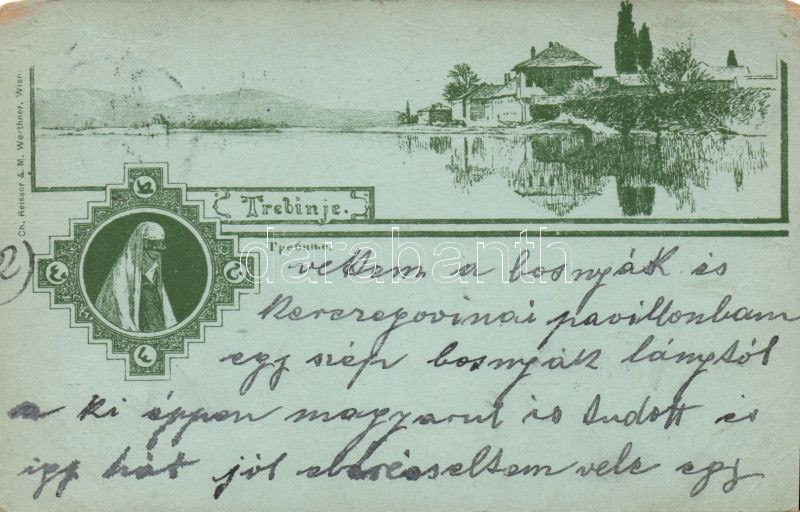 Ch. Reisser & M. Werthner, Wien.
Trebinje.
Требиње.
darabanth
2)
vettem a bosnyák és
Hercegovinai pavillonban
egy szép bosnyák lánytól
a ki éppen magyarul is tudott és
igy hát jól elbeszéltem vele egy